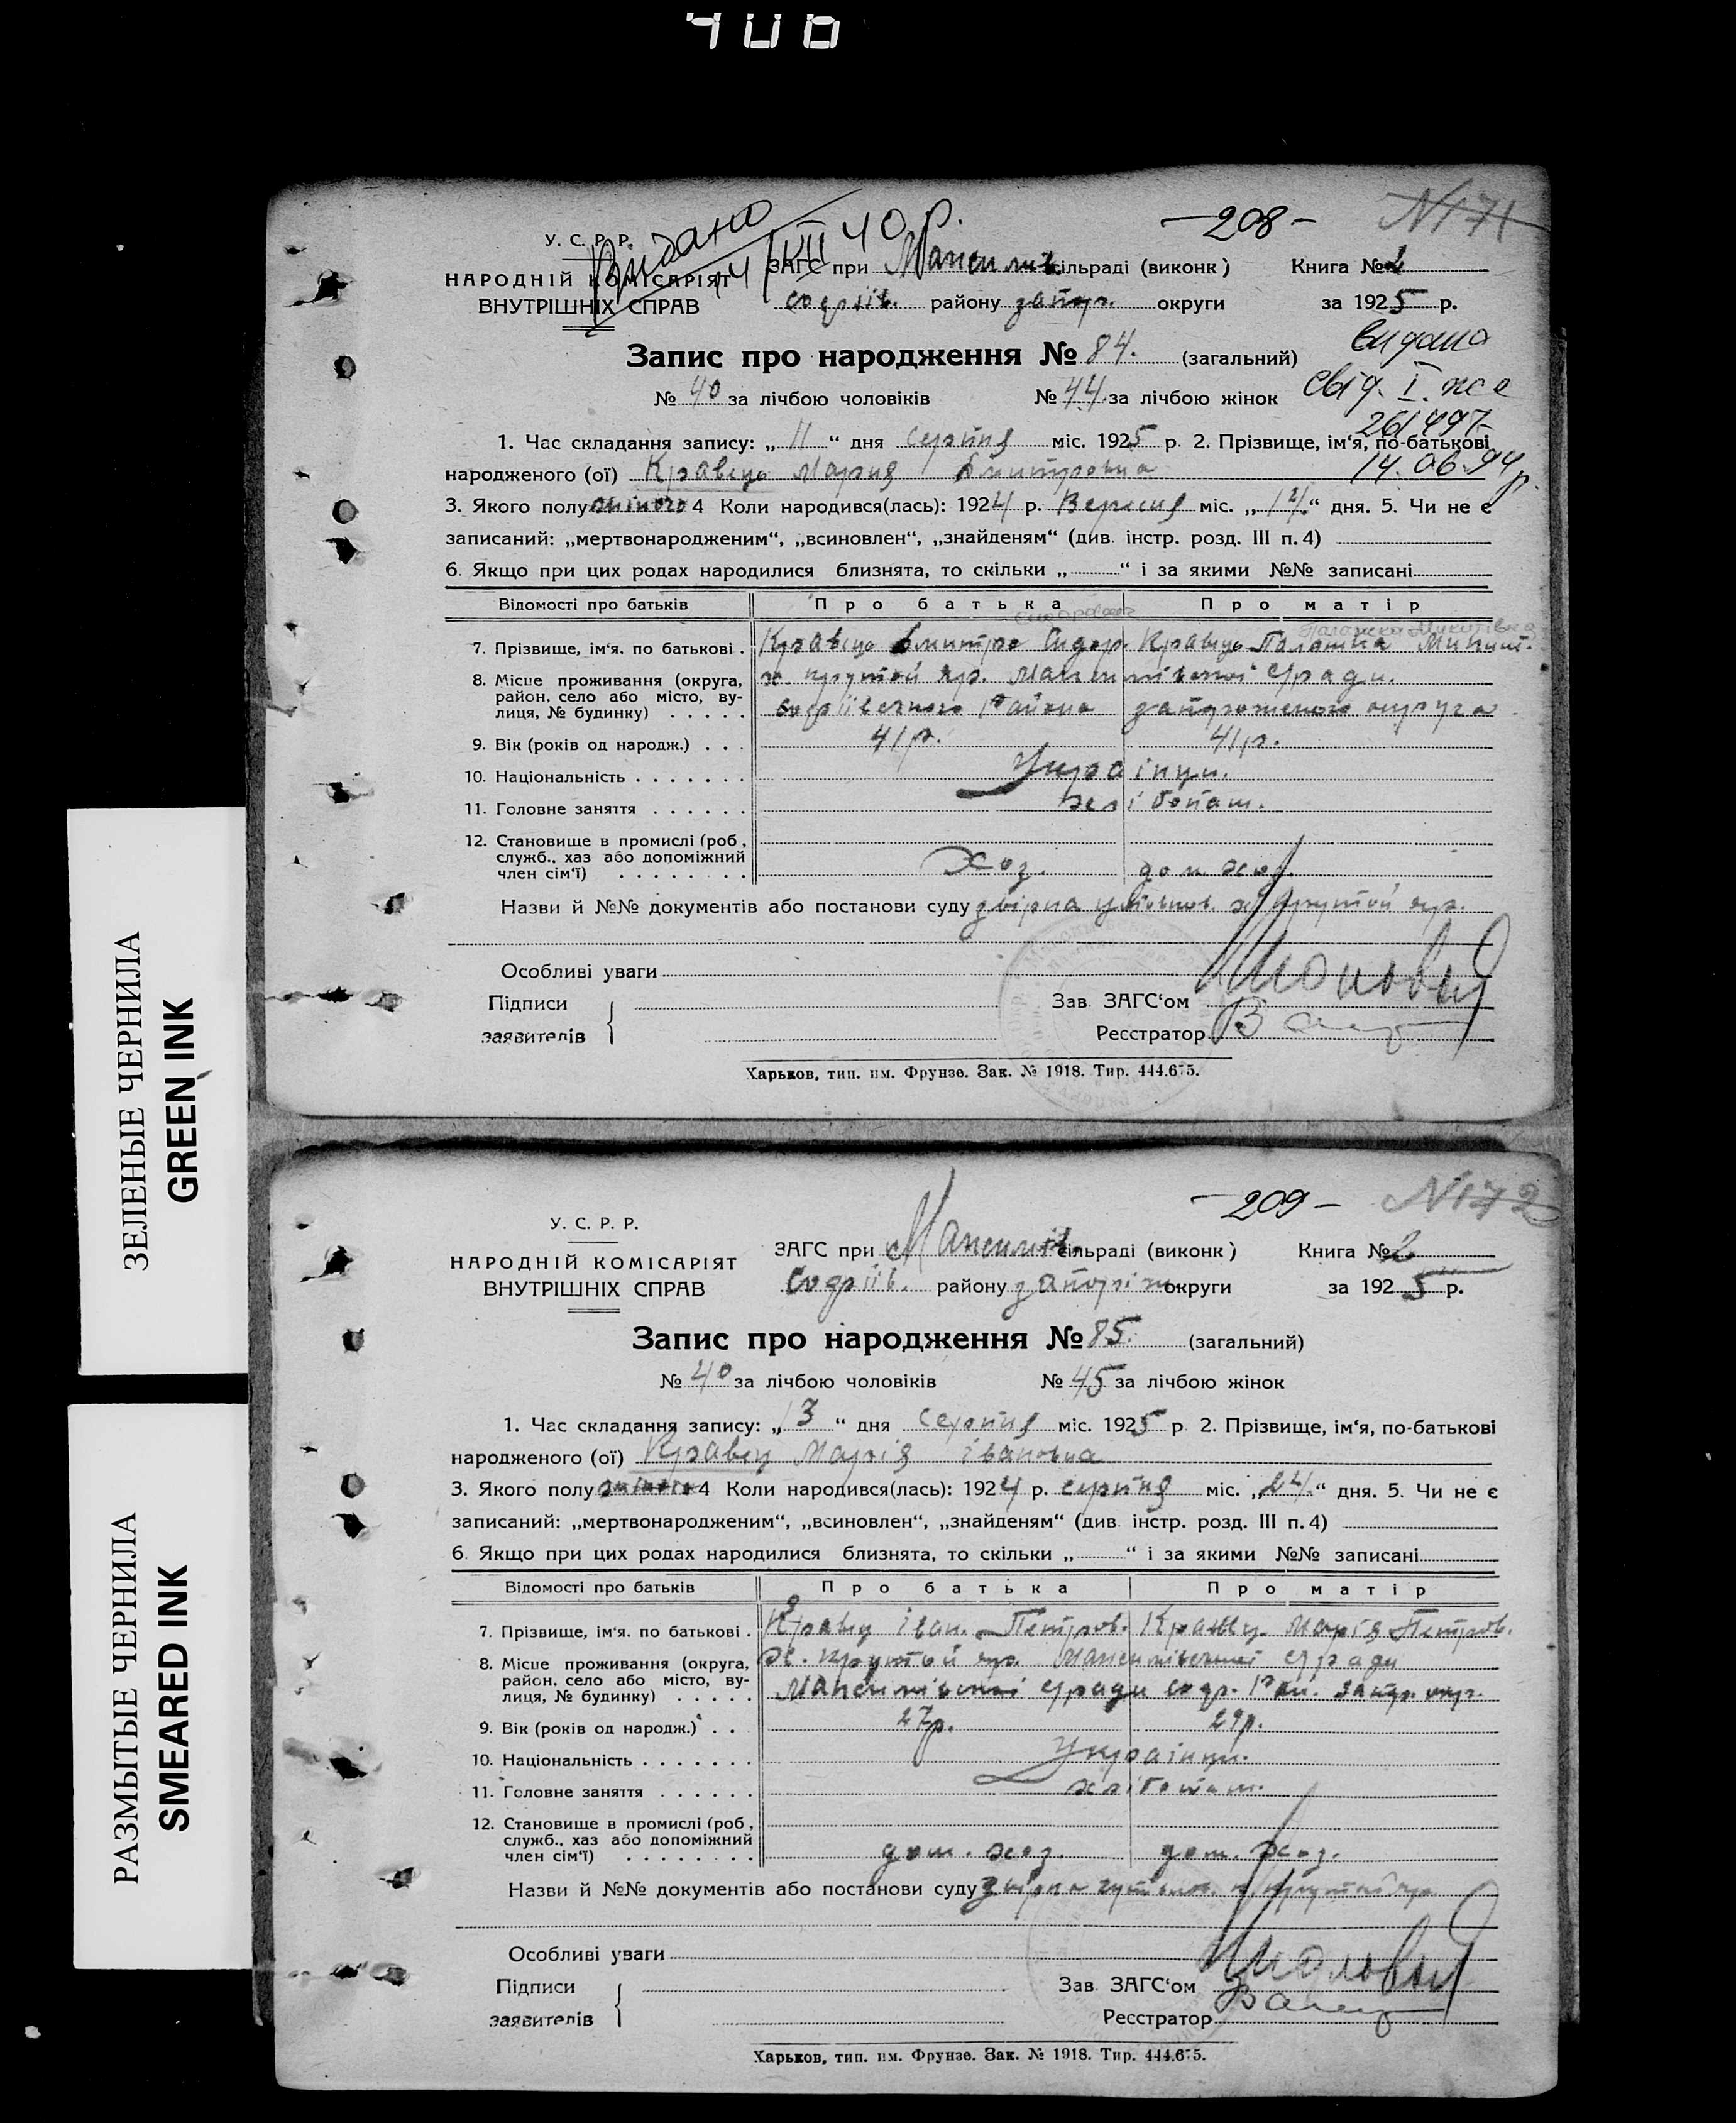 406
-208- N171
Видано
14/XII 40 р.
У. С. Р. Р.
НАРОДНІЙ КОМІСАРІЯТ
ВНУТРІШНІХ СПРАВ
ЗАГС при сільраді (виконк) Книга №
району запор. округи за 1925 р.
Запис про народження № 84. (загальний)
видано
№ 40 за лічбою чоловіків № 44. за лічбою жінок
свід. I. жс
261497
1. Час складання запису: „ 11 “ дня серпня міс. 1925 р 2. Прізвище, ім‘я, по-батькові
народженого (ої) Кравець Мария Дмитровна
14.06.94р.
3. Якого полу жіного 4 Коли народився(лась): 1924 р. Вересня міс. „ “ дня. 5. Чи не є
записаний: „мертвонародженим“, „всиновлен“, „знайденям“ (див. інстр. розд. III п. 4)
6. Якщо при цих родах народилися близнята, то скільки „ “ і за якими №№ записані
Відомості про батьків Про батька Про матір
7. Прізвище, ім‘я. по батькові . Кравець Дмитро Сидор. Кравець
8. Місце проживання (округа,
район, село або місто, ву-
лиця, № будинку) . . . . .
х. крутой яр.
района запорожского округа
9. Вік (років од народж.) . . . 41р. 41р.
10. Національність . . . . . . . Українци.
11. Головне заняття . . . . . . хлібопаш.
12. Становище в промислі (роб,
служб., хаз або допоміжний
член сім‘ї) . . . . . . . .
Хоз. дом. хоз.
Назви й №№ документів або постанови суду крутой яр.
Особливі уваги
Підписи
заявителів
Зав ЗАГС‘ом
Реєстратор
Харьков, тип. им. Фрунзе. Зак. № 1918. Тир. 444.675.
-209- N172
У. С. Р. Р.
НАРОДНІЙ КОМІСАРІЯТ
ВНУТРІШНІХ СПРАВ
ЗАГС при сільраді (виконк) Книга № 2
району округи за 1925 р.
Запис про народження № 85. (загальний)
№ 40 за лічбою чоловіків № 45 за лічбою жінок
1. Час складання запису: „ 13 “ дня серпня міс. 1925 р 2. Прізвище, ім‘я, по-батькові
народженого (ої) Кравец Марія Івановна
3. Якого полу жіного 4 Коли народився(лась): 1924 р. серпня міс. „ 24. “ дня. 5. Чи не є
записаний: „мертвонародженим“, „всиновлен“, „знайденям“ (див. інстр. розд. III п. 4)
6. Якщо при цих родах народилися близнята, то скільки „ “ і за якими №№ записані
Відомості про батьків Про батька Про матір
7. Прізвище, ім‘я. по батькові . Кравец Іван. Петров. Кравец Марія Петров.
8. Місце проживання (округа,
район, село або місто, ву-
лиця, № будинку) . . . . .
х. крутой яр.
9. Вік (років од народж.) . . . 27р. 29р.
10. Національність . . . . . . . Українци.
11. Головне заняття . . . . . . хлібопаш.
12. Становище в промислі (роб,
служб., хаз або допоміжний
член сім‘ї) . . . . . . . .
дом. хоз. дом. хоз.
Назви й №№ документів або постанови суду
Особливі уваги
Підписи
заявителів
Зав ЗАГС‘ом
Реєстратор
Харьков, тип. им. Фрунзе. Зак. № 1918. Тир. 444.675.
ЗЕЛЕНЫЕ ЧЕРНИЛА
GREEN INK
РАЗМЫТЫЕ ЧЕРНИЛА
SMEARED INK